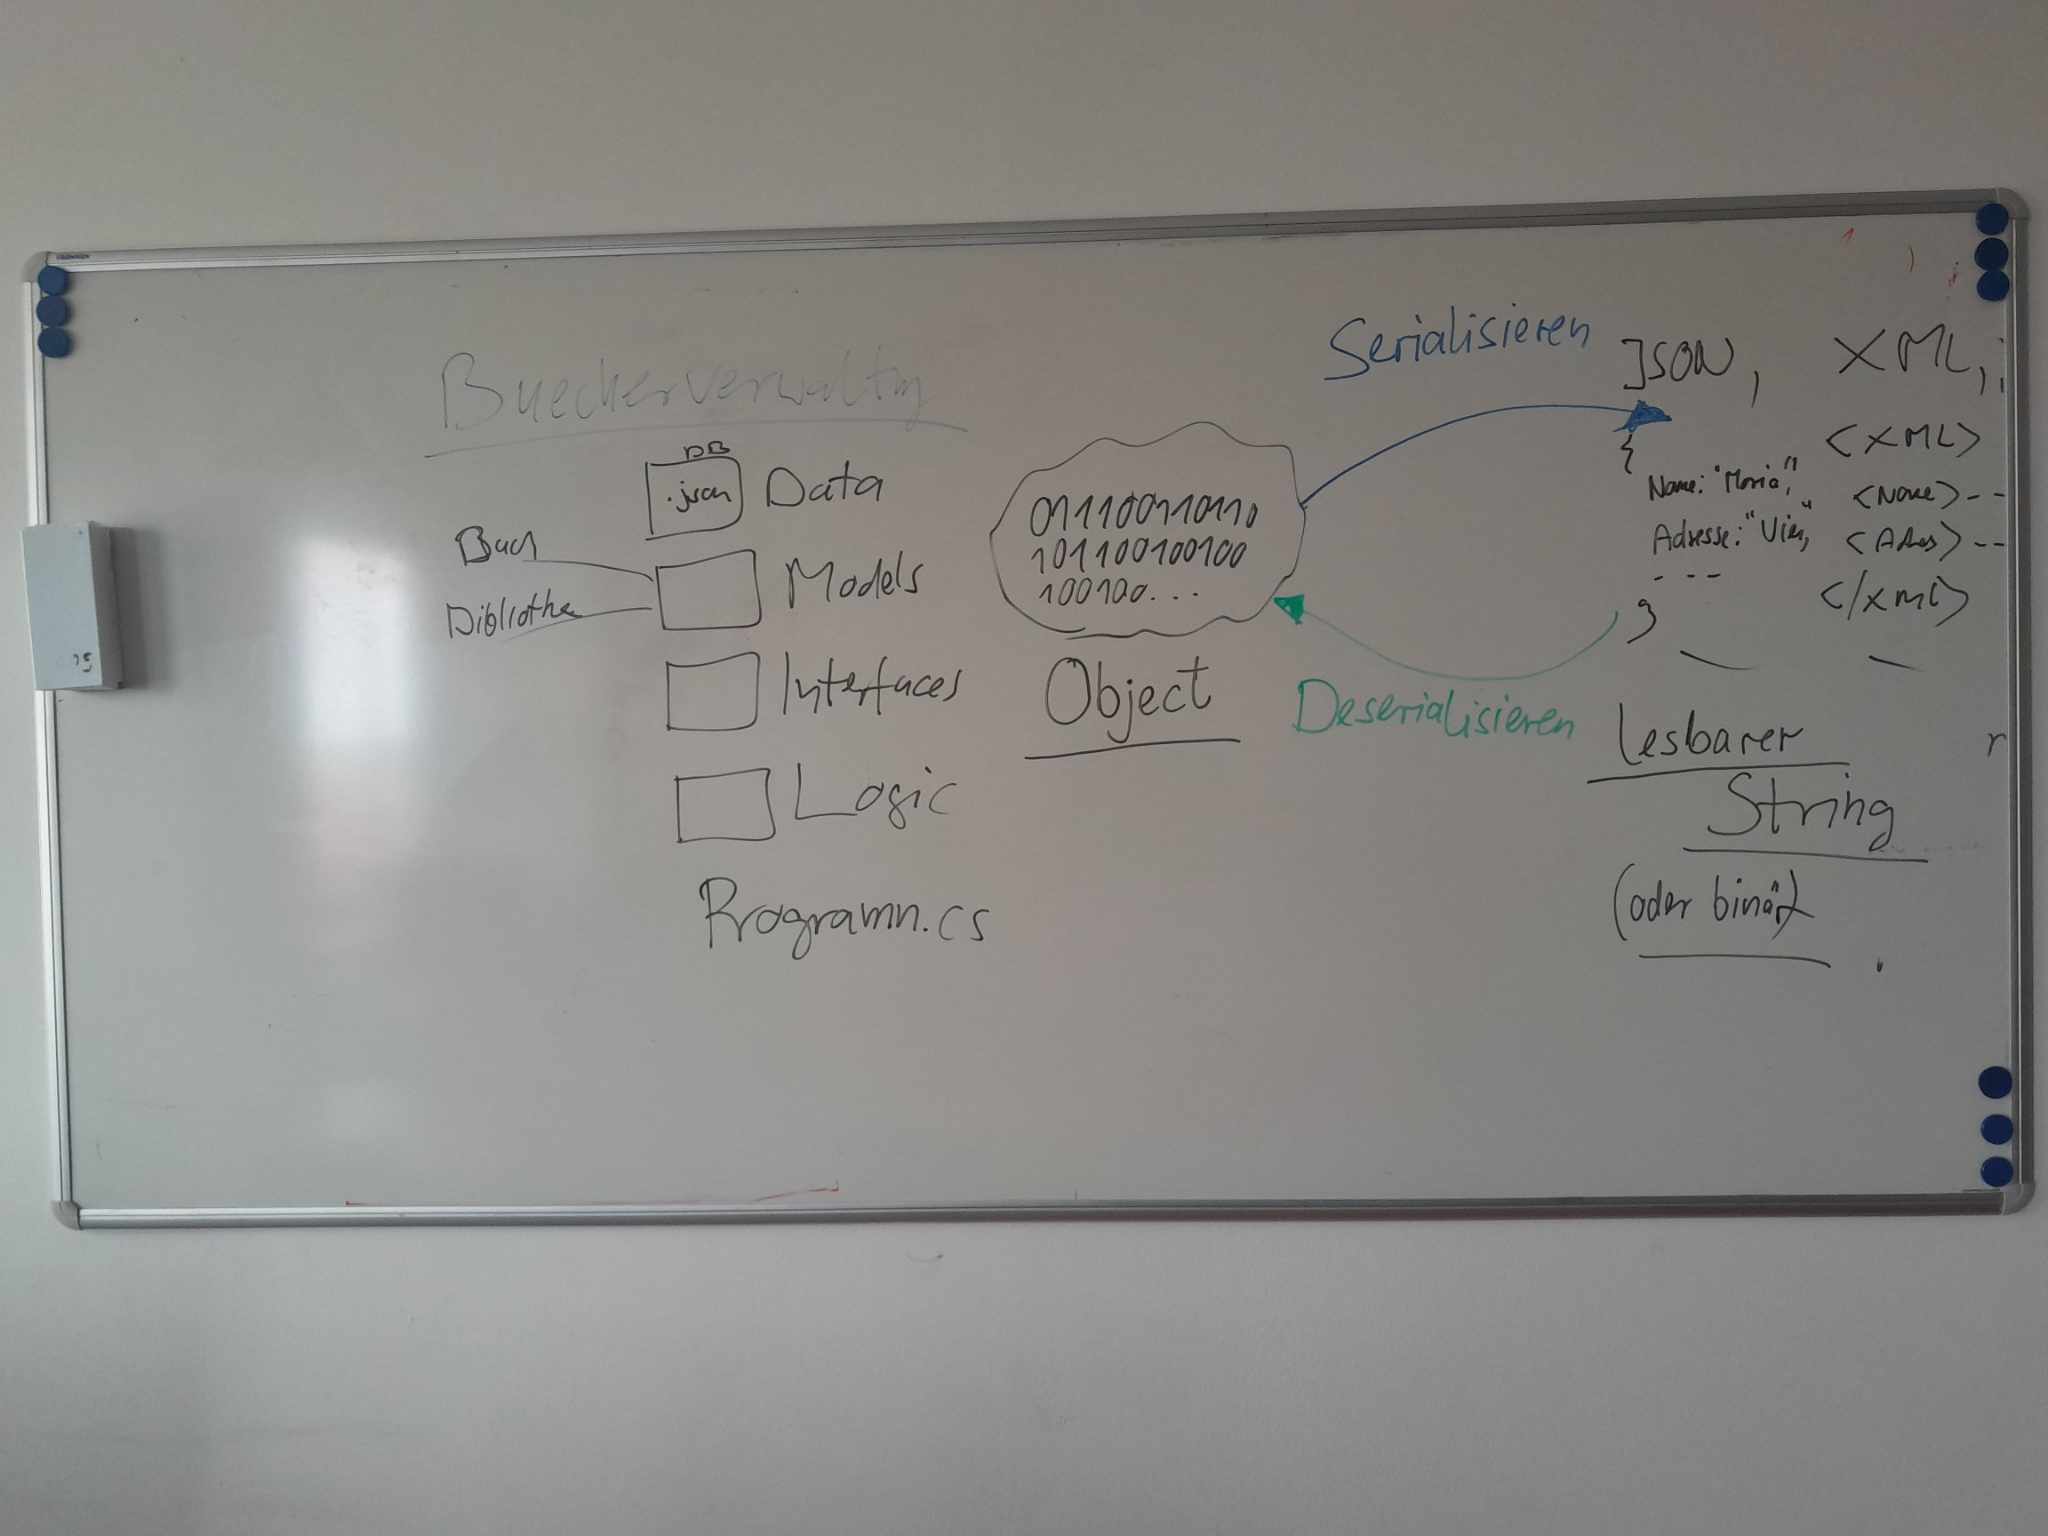 Buecherverwaltung
DB
.json Data
Buch
Models
Bibliothe
Interfaces
Logic
Programm.cs
011100110110
101100100100
100100...
Object
Serialisieren
Deserialisieren
JSON, XML,
{
Name: "Maria",
Adresse: "Wien",
- - -
}
<XML>
<Name>--
</XML>
Lesbarer
String
(oder binär)